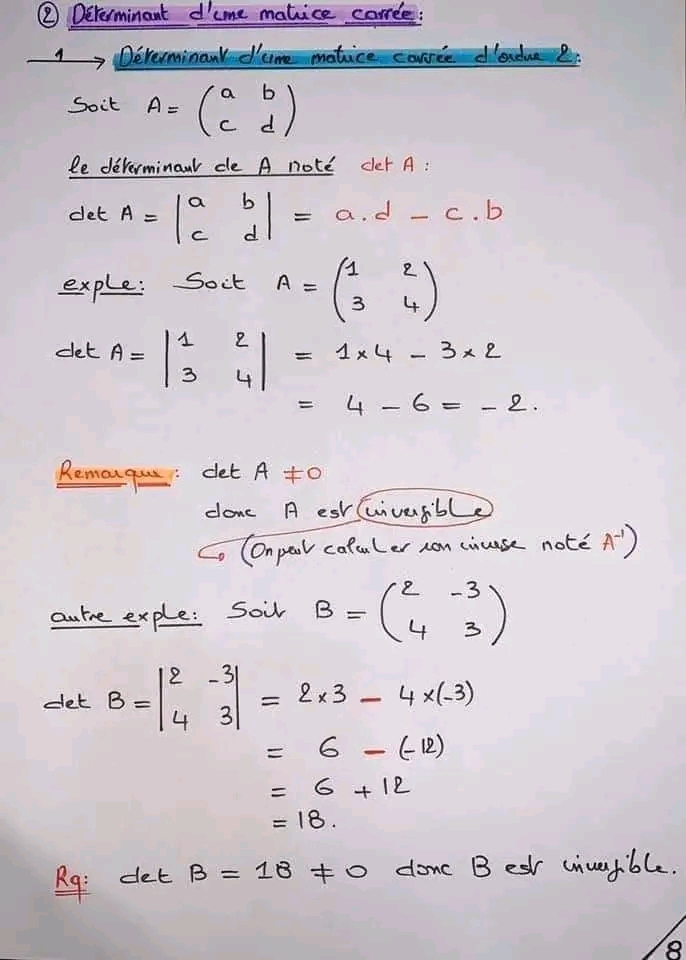 ② Déterminant d'une matrice carrée:
1 → Déterminant d'une matrice carrée d'ordre 2:
Soit A = ( a b
c d )
le déterminant de A noté det A :
det A = | a b
c d | = a.d - c.b
exple: Soit A = ( 1 2
3 4 )
det A = | 1 2
3 4 | = 1 x 4 - 3 x 2
= 4 - 6 = - 2.
Remarque: det A ≠ 0
donc A est inversible
(On peut calculer son inverse noté A⁻¹)
autre exple: Soit B = ( 2 -3
4 3 )
det B = | 2 -3
4 3 | = 2 x 3 - 4 x (-3)
= 6 - (-12)
= 6 + 12
= 18.
Rq: det B = 18 ≠ 0 donc B est inversible.
8